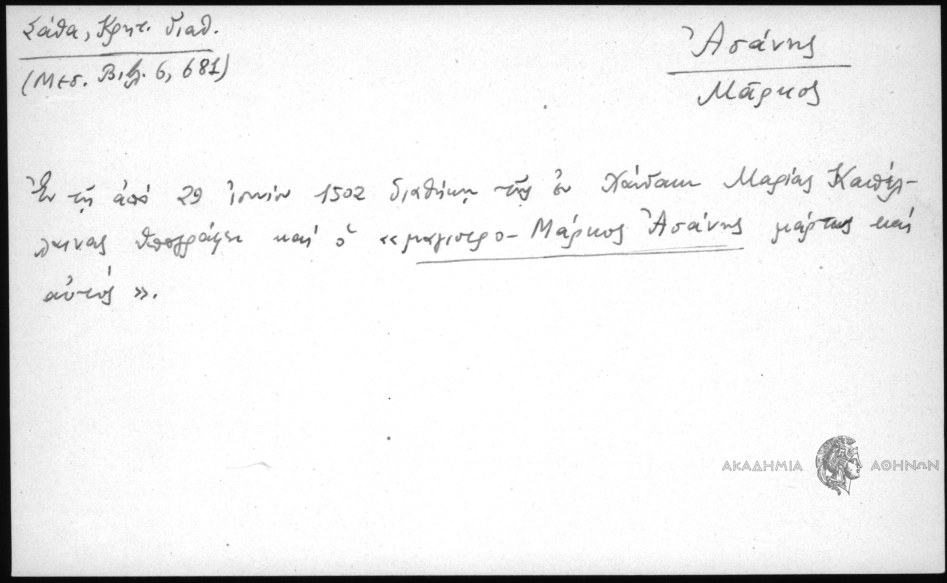 Σάθα, Κρητ. διαθ.
(Μεσ. Βιβλ. 6, 681)
Ἀσάνης
Μάρκος
Ἐν τῇ ἀπό 29 Ἰουνίου 1502 διαθήκῃ τῆς ἐν Χάνδακι Μαρίας
ὑπογράφει καί ὁ «μαγιστρο-Μάρκος Ἀσάνης μάρτυς καί
αὐτός».
ΑΚΑΔΗΜΙΑ ΑΘΗΝΩΝ